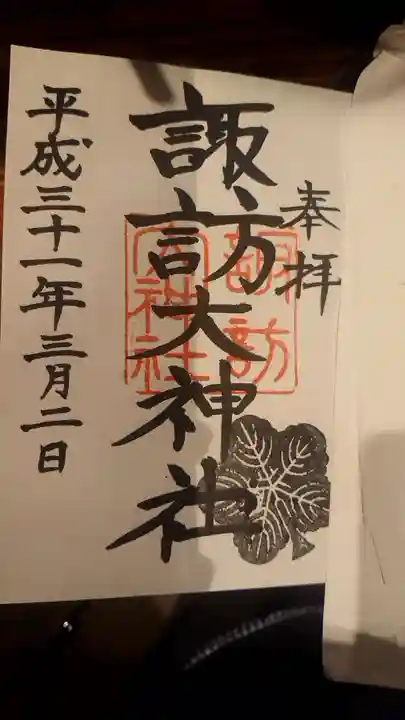 奉拝
諏訪大神社
諏訪
大神社
平成三十一年三月二日